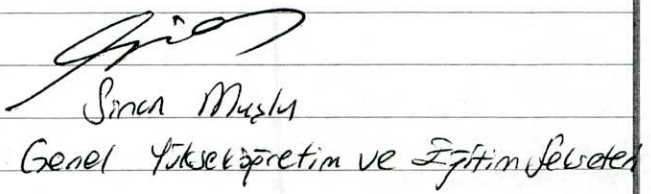 Sinan Muşlu
Genel Yükseköğretim ve Eğitim Sekreteri